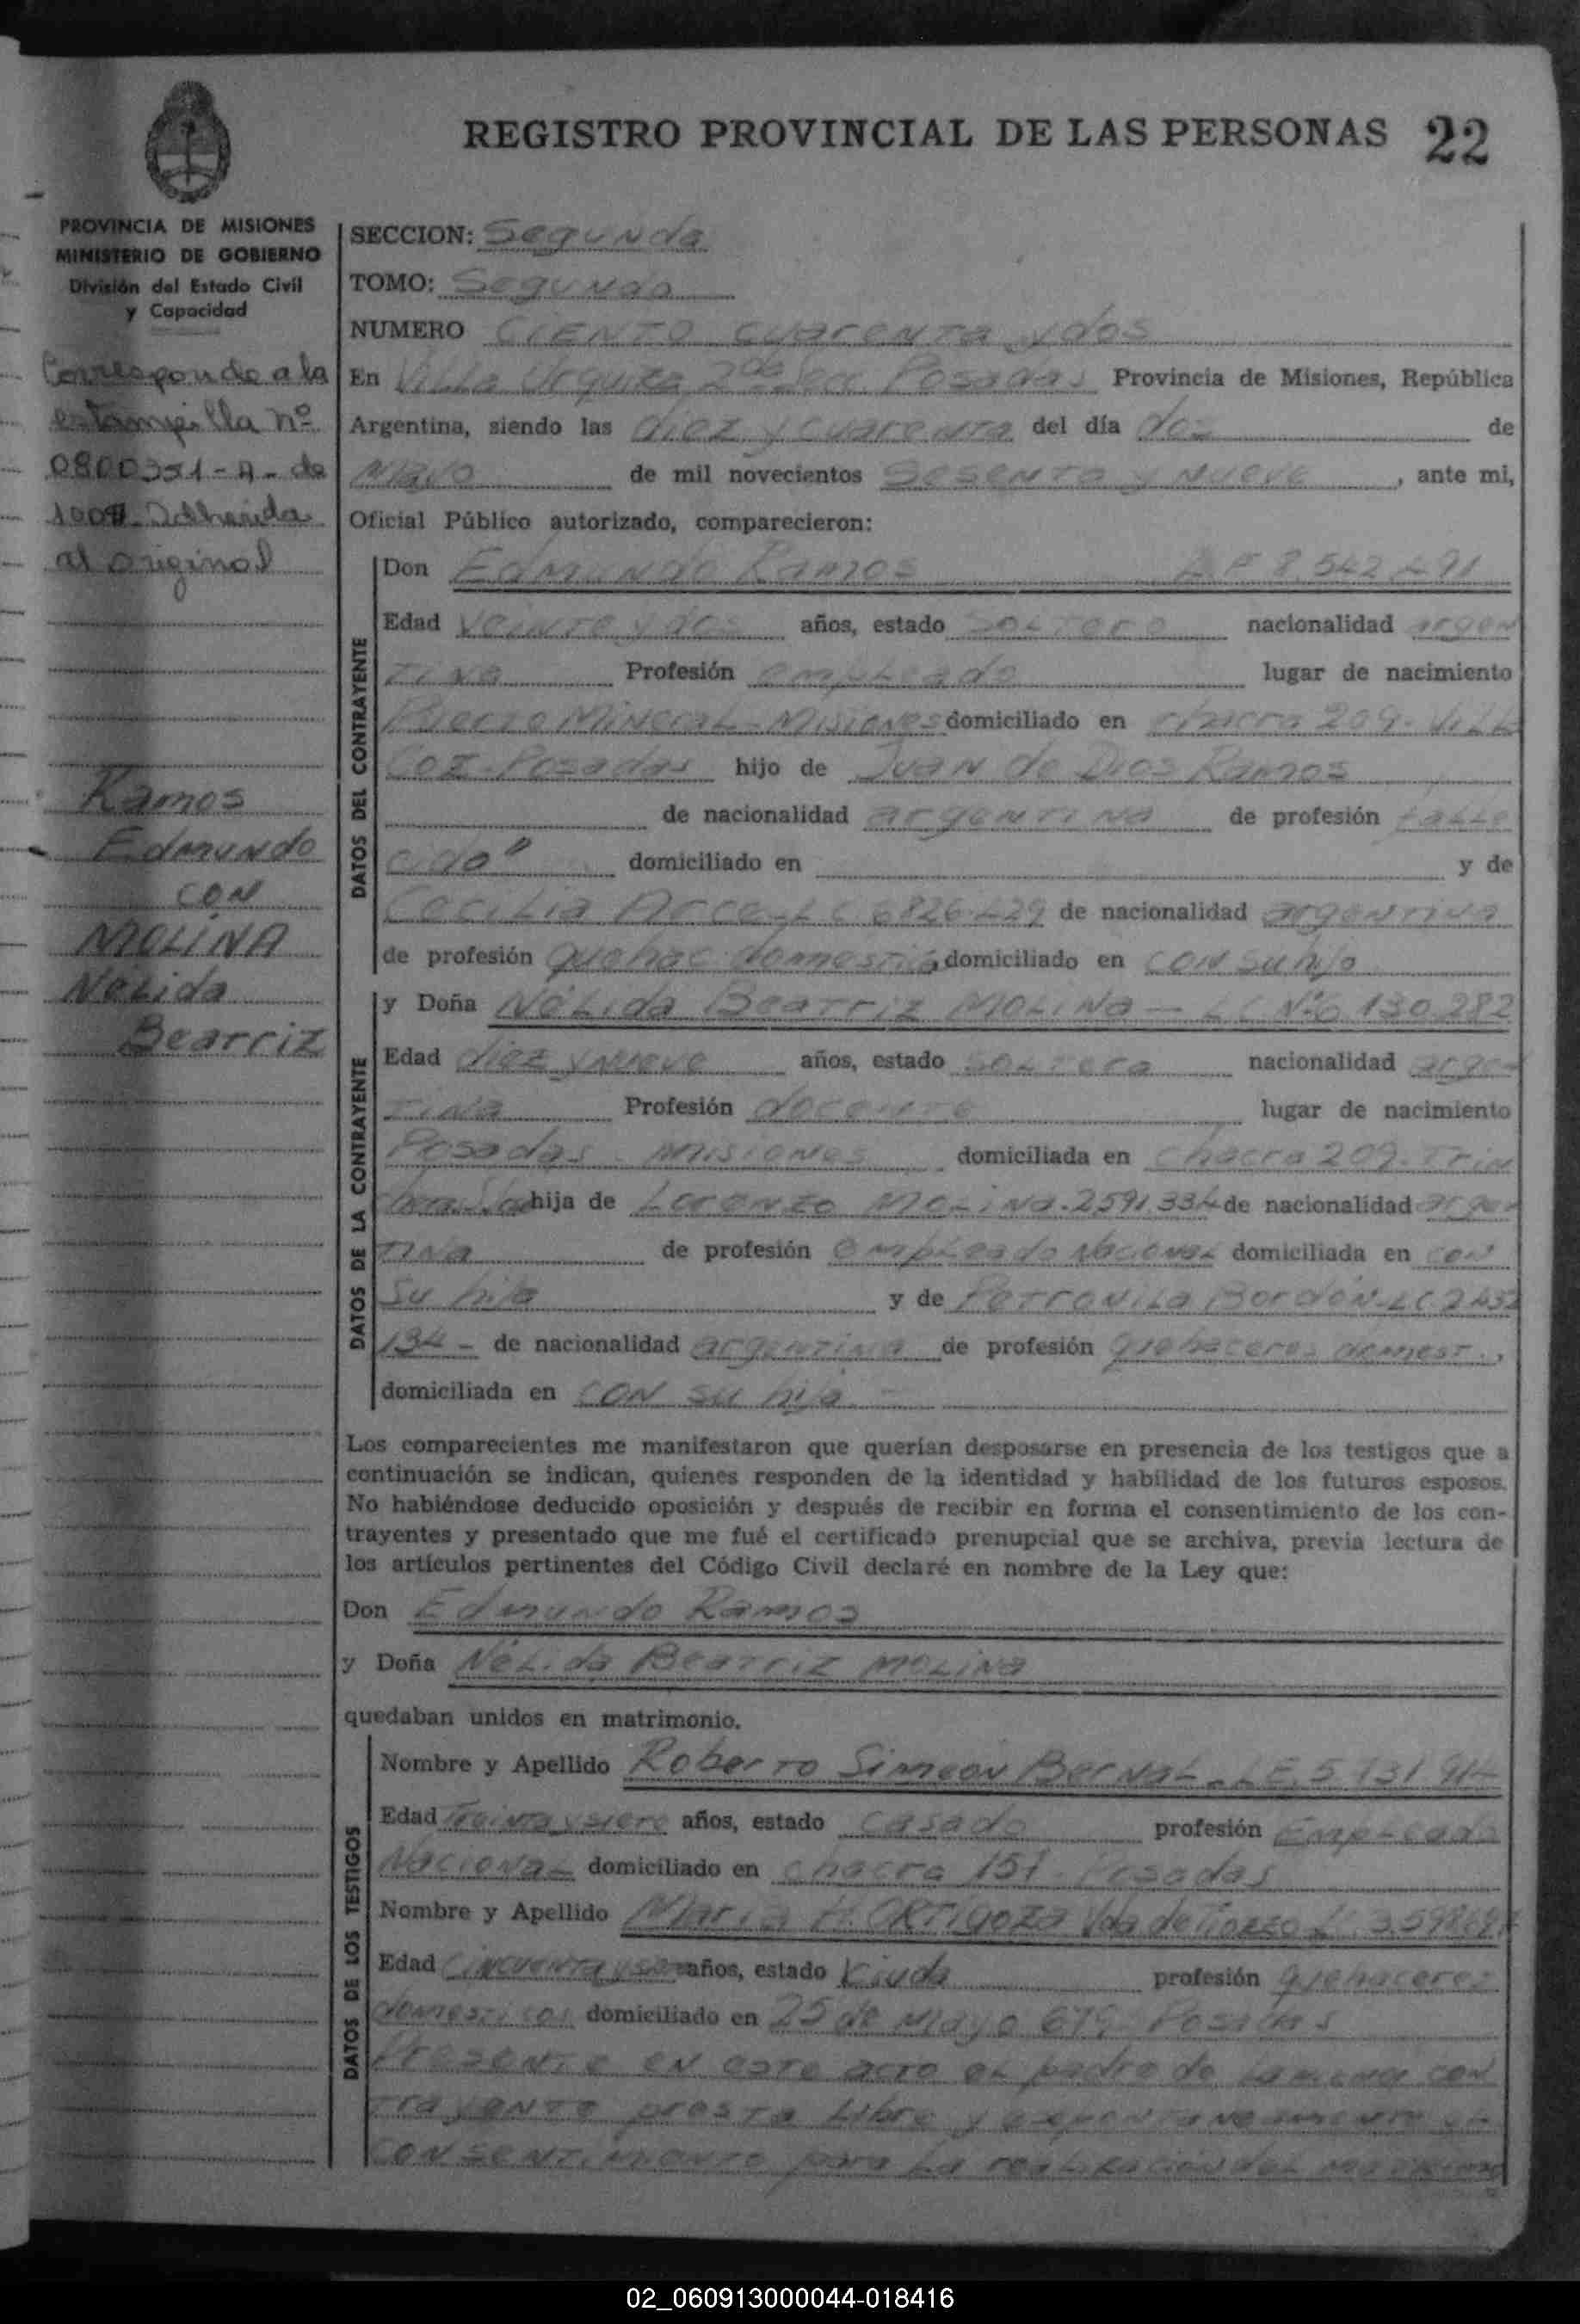 REGISTRO PROVINCIAL DE LAS PERSONAS 22
PROVINCIA DE MISIONES
MINISTERIO DE GOBIERNO
División del Estado Civil
y Capacidad
Corresponde a la
estampilla nº
0800351-A- de
100 Adherida
al original
Ramos
Edmundo
CON
MOLINA
Nélida
Beatriz
SECCION: Segunda
TOMO: Segundo
NUMERO CIENTO cuarenta y dos
En Villa Urquiza 2da Secc. Posadas Provincia de Misiones, República
Argentina, siendo las diez y cuarenta del día dos de
Mayo de mil novecientos Sesenta y Nueve, ante mi,
Oficial Público autorizado, comparecieron:
DATOS DEL CONTRAYENTE
Don Edmundo Ramos 8.542.491
Edad veinte y dos años, estado soltero nacionalidad argen
tina Profesión empleado lugar de nacimiento
Puerto Mineral-Misiones domiciliado en chacra 209-
Posadas hijo de Juan de Dios Ramos
de nacionalidad argentina de profesión falle
cido" domiciliado en y de
Cecilia Arce-LC 6826429 de nacionalidad argentina
de profesión quehac domestic domiciliado en con su hijo
DATOS DE LA CONTRAYENTE
y Doña Nélida Beatriz MOLINA - LC Nº6.130.282
Edad diez y nueve años, estado soltera nacionalidad argen
tina Profesión docente lugar de nacimiento
Posadas - Misiones domiciliada en chacra 209-
hija de Lorenzo MOLINA-2591.334 de nacionalidad argen
tina de profesión empleado Nacional domiciliada en con
su hija y de Petronila Bordón-LC 2452
134- de nacionalidad argentina de profesión quehaceres domest.,
domiciliada en con su hija
Los comparecientes me manifestaron que querían desposarse en presencia de los testigos que a
continuación se indican, quienes responden de la identidad y habilidad de los futuros esposos.
No habiéndose deducido oposición y después de recibir en forma el consentimiento de los con-
trayentes y presentado que me fué el certificado prenupcial que se archiva, previa lectura de
los artículos pertinentes del Código Civil declaré en nombre de la Ley que:
Don Edmundo Ramos
y Doña Nélida Beatriz MOLINA
quedaban unidos en matrimonio.
DATOS DE LOS TESTIGOS
Nombre y Apellido Roberto Simeon Bernal-LE.5.131.914
Edad Treinta y siete años, estado casado profesión Empleado
Nacional domiciliado en chacra 151 Posadas
Nombre y Apellido Maria H. ORTIGOZA Vda de
Edad Cincuenta y años, estado Viuda profesión quehaceres
domesticos domiciliado en 25 de Mayo 679 Posadas
Presente en este acto el padre de la menor con
trayente presta libre y espontaneamente su
consentimiento para la realización del matrimo
02_060913000044-018416